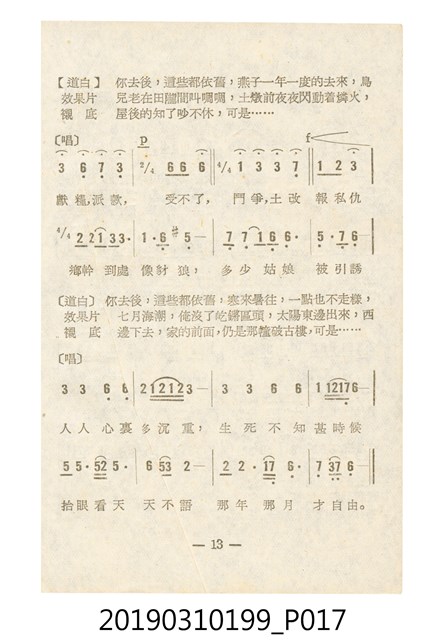 【道白】 你去後，這些都依舊，燕子一年一度的去來，鳥
效果片 兒老在田隴間叫嘓嘓，土墩前夜夜閃動着燐火，
襯底 屋後的知了吵不休，可是⋯⋯
〔唱〕 p f
3 6 7 3 | 2/4 6 6 6 || 4/4 1 3 3 7 || 1 2 3 |
獻糧，派款， 受不了， 鬥爭，土改 報私仇
4/4 2 2 1 3 3· | 1·6 #5 — | 7 7 1 6 6· | 5·7 6 |
鄉幹到處像豺狼， 多少姑娘 被引誘
〔道白〕 你去後，這些都依舊，寒來暑往，一點也不走樣，
效果片 七月海潮，淹沒了屹區頭，太陽東邊出來，西
襯底 邊下去，家的前面，仍是那幢破古樓，可是⋯⋯
〔唱〕
3 3 6 6 | 2 1 2 1 2 3 — | 3 3 6 6 | 1 1 2 1 7 6 — |
人人心裏多沉重， 生死不知甚時候
5 5· 5 2 5· | 6 5 3 2 — | 2 2· 1 7 6· | 7 3 7 6 — |
抬眼看天 天不語 那年那月 才自由。
— 13 —
20190310199_P017